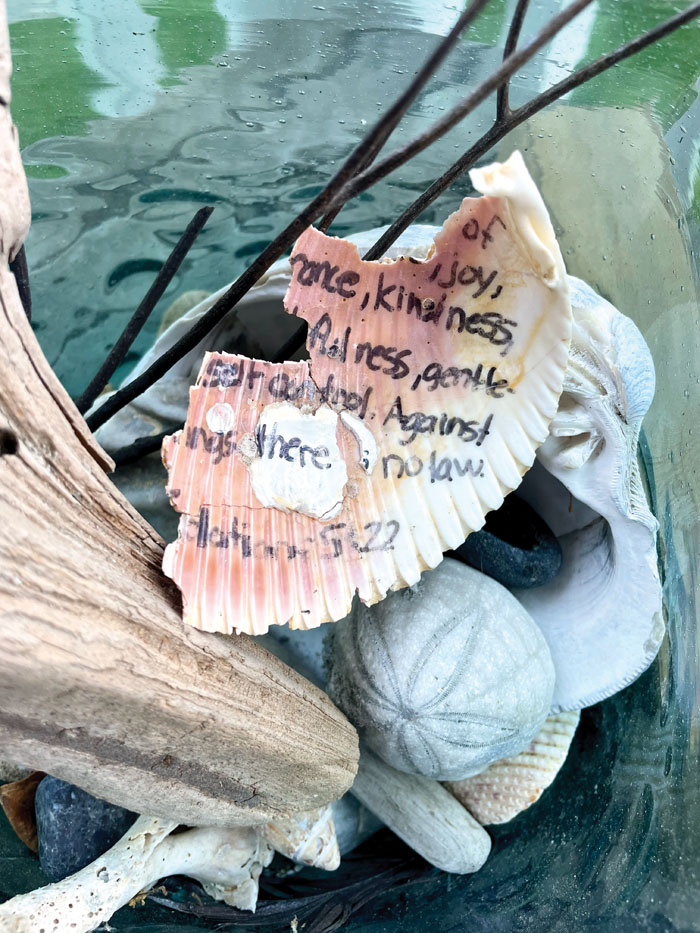 of
, joy,
rance, kindness,
ness, gentle-
self control. Against
ings there no law.
lations 5:22